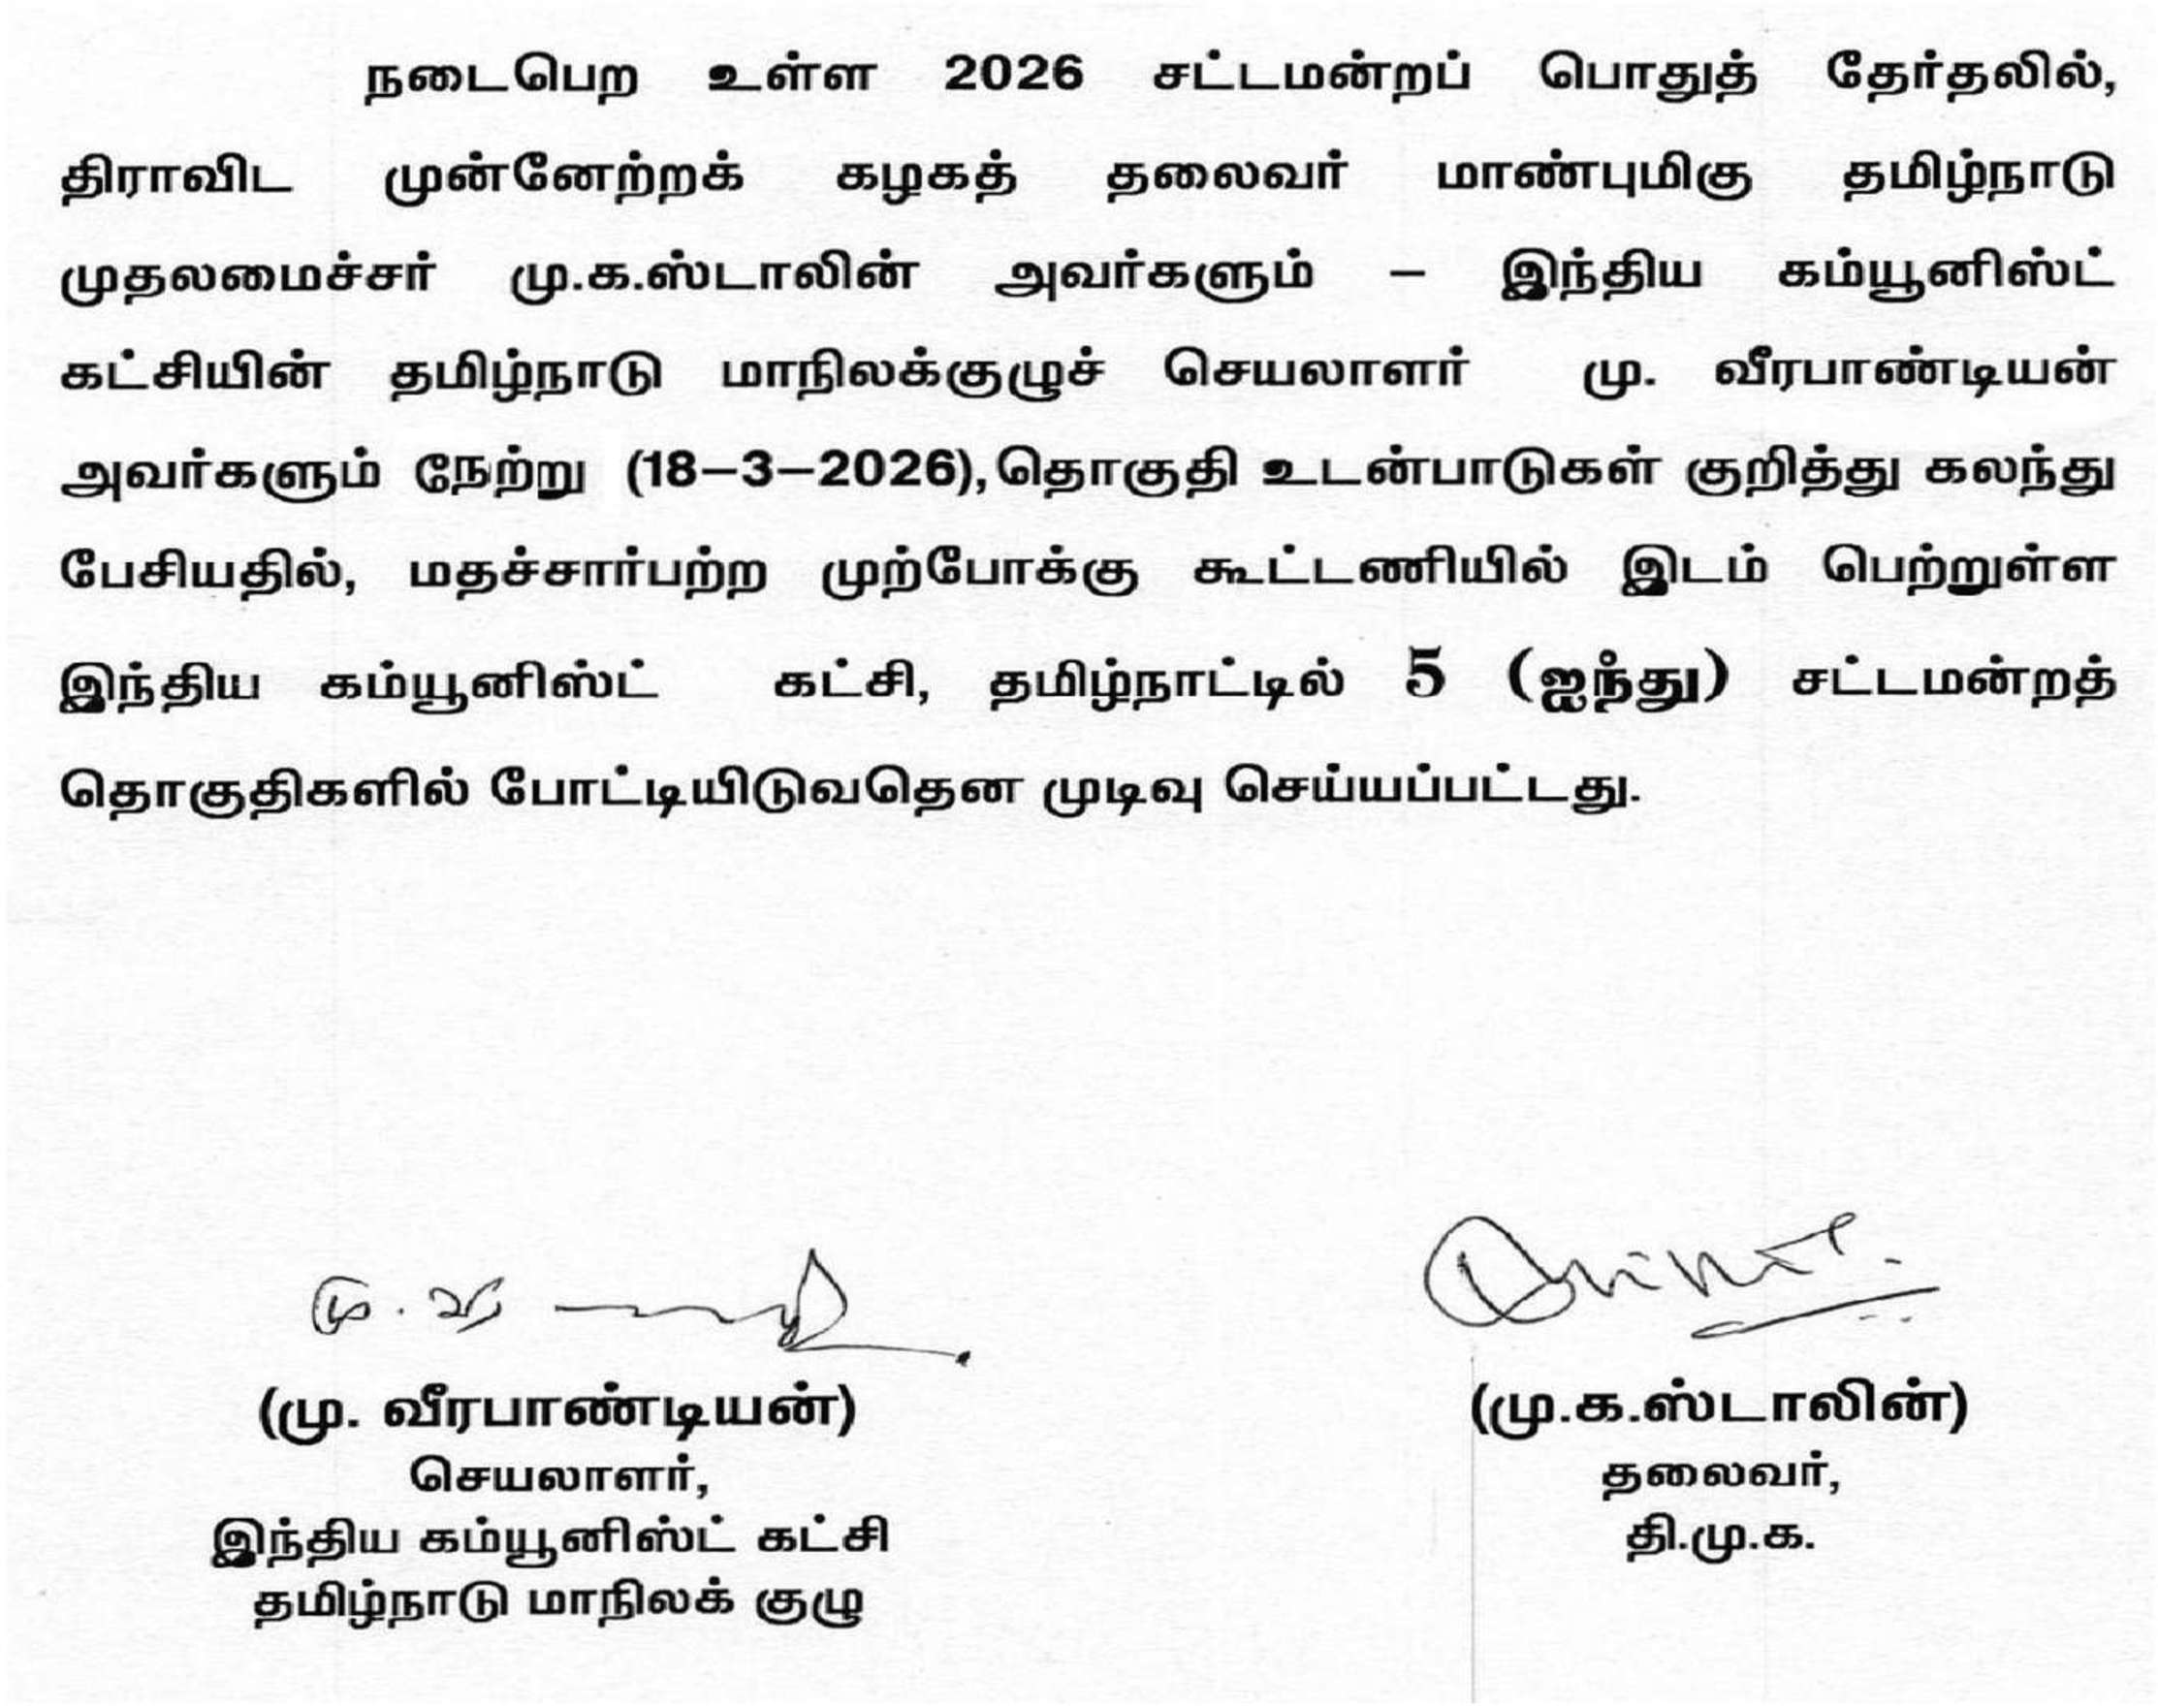 நடைபெற உள்ள 2026 சட்டமன்றப் பொதுத் தேர்தலில்,
திராவிட முன்னேற்றக் கழகத் தலைவர் மாண்புமிகு தமிழ்நாடு
முதலமைச்சர் மு.க.ஸ்டாலின் அவர்களும் – இந்திய கம்யூனிஸ்ட்
கட்சியின் தமிழ்நாடு மாநிலக்குழுச் செயலாளர் மு. வீரபாண்டியன்
அவர்களும் நேற்று (18–3–2026),தொகுதி உடன்பாடுகள் குறித்து கலந்து
பேசியதில், மதச்சார்பற்ற முற்போக்கு கூட்டணியில் இடம் பெற்றுள்ள
இந்திய கம்யூனிஸ்ட் கட்சி, தமிழ்நாட்டில் 5 (ஐந்து) சட்டமன்றத்
தொகுதிகளில் போட்டியிடுவதென முடிவு செய்யப்பட்டது.
(மு. வீரபாண்டியன்)
செயலாளர்,
இந்திய கம்யூனிஸ்ட் கட்சி
தமிழ்நாடு மாநிலக் குழு
(மு.க.ஸ்டாலின்)
தலைவர்,
தி.மு.க.